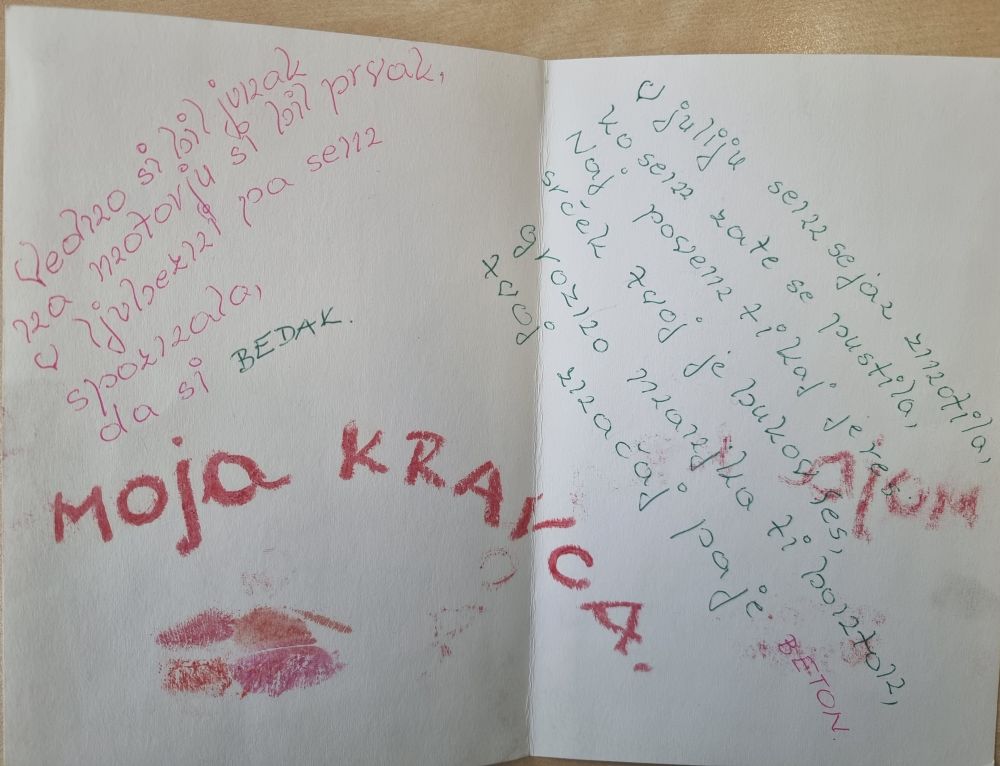 Vedno si bil junak
na motorju si bil prvak,
v ljubezni pa sem
spoznala,
da si BEDAK.
V juliju sem se jaz zmotila,
ko sem zate se pustila,
Naj povem ti kaj je res
srček tvoj je bukov les,
grozno manjka ti bonton,
tvoj značaj pa je BETON.
MOJA KRANCA.